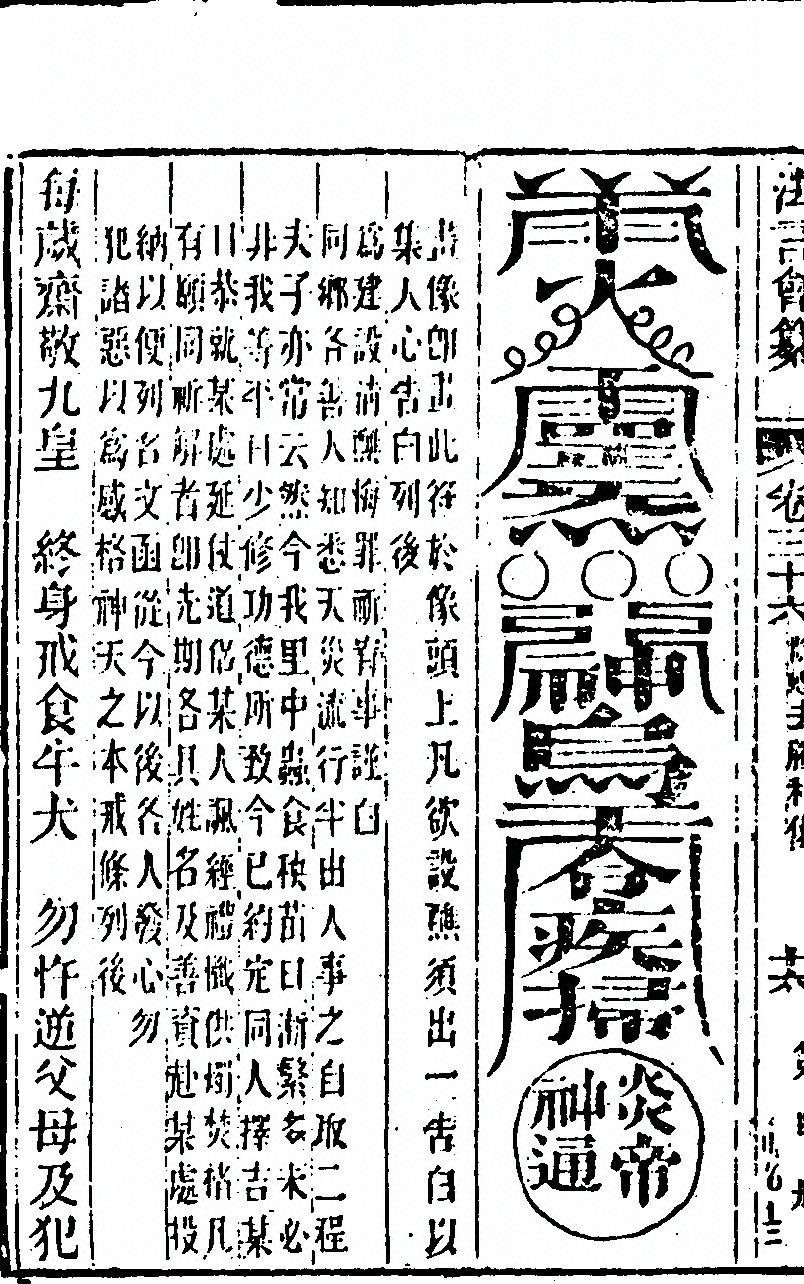 法言會纂
卷三十六
神鳥
吞疾掃
炎帝
神通
畫像卽畫此符於像頭上凡欲設醮須出一告白以
集人心告白列後
爲建設清醮悔罪祈禳事謹白
同鄉各善人知悉天災流行半出人事之自取二程
夫子亦常云然今我里中蟲食秧苗日漸繁多未必
非我等平日少修功德所致今已約定同人擇吉某
日恭就某處延仗道侶某人諷經禮懺供燭焚楮凡
有願同祈解者卽先期各具姓名及善資赴某處投
納以便列名文函從今以後各人發心勿
犯諸惡以爲感格神天之本戒條列後
每歲齋敬九皇　終身戒食牛犬　勿忤逆父母及犯